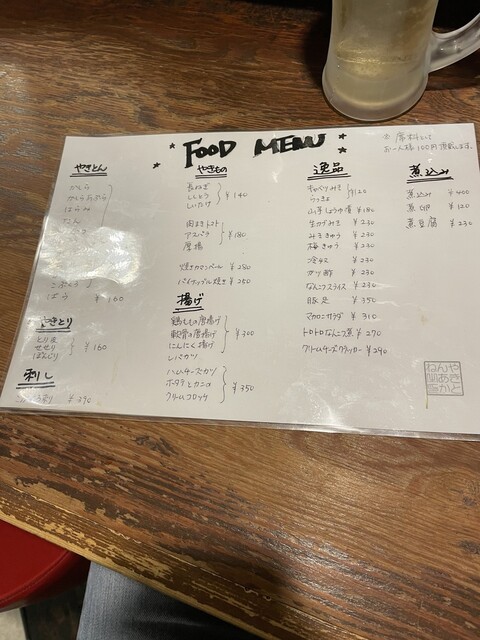 FOOD MENU
※ 席料として
お一人様 100円頂戴します。
やきとん
かしら
かしらあぶら
はらみ
たん
こぶくろ
ばら ¥160
やきとり
とり皮
せせり
ぼんじり
¥160
刺し
刺し ¥390
やきもの
長ねぎ
ししとう
しいたけ
¥140
肉まきトマト
アスパラ
厚揚
¥180
焼きカマンベール ¥280
パイナップル焼き ¥250
揚げ
鶏もも唐揚げ
軟骨唐揚げ
にんにく揚げ
レバカツ
¥300
ハムチーズカツ
ホタテとカニの
クリームコロッケ
¥350
逸品
キャベツみそ
らっきょ
¥120
山芋しょうゆ漬 ¥180
生カブみそ ¥230
みそきゅう ¥230
梅きゅう ¥230
冷やし ¥230
ガツ酢 ¥230
なんこつスライス ¥230
豚足 ¥350
マカロニサラダ ¥310
トロトロなんこつ煮 ¥270
クリームチーズクラッカー ¥290
煮込み
煮込み ¥400
煮卵 ¥120
煮豆腐 ¥230